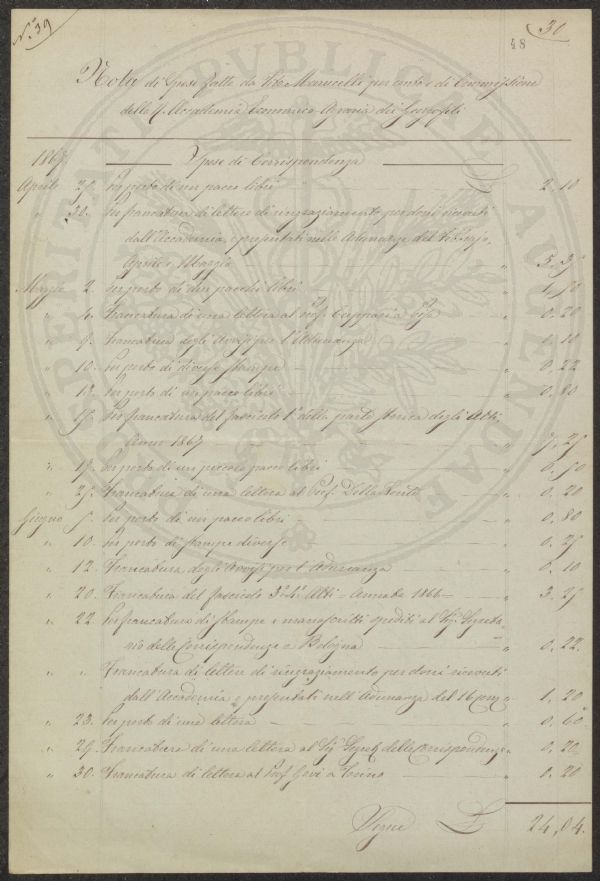 N.° 39
30
48
Nota di Spese fatte da Marucelli per conto e di Commissione
della R. Accademia Economico-Agraria dei Georgofili
1867 Spese di Corrispondenza
Aprile 29. In porto di un pacco libri 2.10
" 30. In francatura di lettere di ringraziamento per doni ricevuti
dall'Accademia, e presentati nelle Adunanze del Febbrajo,
Aprile e Maggio "
Maggio 2. In porto di due pacchi libri "
" Francatura di una lettera al Prof. Cuppari a Pisa " 0.20
" 9. Francatura degli Avvisi per l'Adunanza " 0.10
" 10. In porto di diverse stampe " 0.22
" In porto di un pacco libri " 0.80
" In francatura del fascicolo 1° della parte storica degli Atti
Anno 1867 "
" In porto di un piccolo pacco libri " 0.50
" Francatura di una lettera al Prof. Della " 0.20
Giugno 5. In porto di un pacco libri " 0.80
" 10. In porto di stampe diverse " 0.25
" 12. Francatura degli Avvisi per l'Adunanza " 0.10
" 20. Francatura del fascicolo 3° e 4° Atti = Annata 1866 = " 3.25
" 22. In francatura di stampe e manoscritti spediti al Sig. Segreta-
rio delle Corrispondenze a Bologna " 0.22
" " Francatura di lettere di ringraziamento per doni ricevuti
dall'Accademia, e presentati nell'Adunanza del 16 " 1.20
" 23. In porto di una lettera " 0.60
" 29. Francatura di una lettera al Sig. Segret. delle Corrispondenze " 0.20
" 30. Francatura di lettera al Prof. Govi a Torino " 0.20
Segue L 24,04.
PROSPERITATI PVBLICAE AVGENDAE